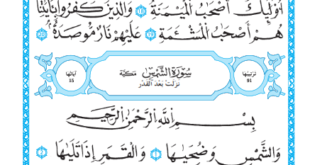 أُوْلَٰٓئِكَ أَصْحَٰبُ ٱلْمَيْمَنَةِ ١٨ وَٱلَّذِينَ كَفَرُواْ بِـَٔايَٰتِنَا
هُمْ أَصْحَٰبُ ٱلْمَشْـَٔمَةِ ١٩ عَلَيْهِمْ نَارٌ مُّؤْصَدَةٌۢ ٢٠
ترتيبها ٩١ سُورَةُ الشَّمْسِ مكية آياتها ١٥
نزلت بعد القدر
بِسْمِ ٱللَّهِ ٱلرَّحْمَٰنِ ٱلرَّحِيمِ
وَٱلشَّمْسِ وَضُحَىٰهَا ١ وَٱلْقَمَرِ إِذَا تَلَىٰهَا ٢